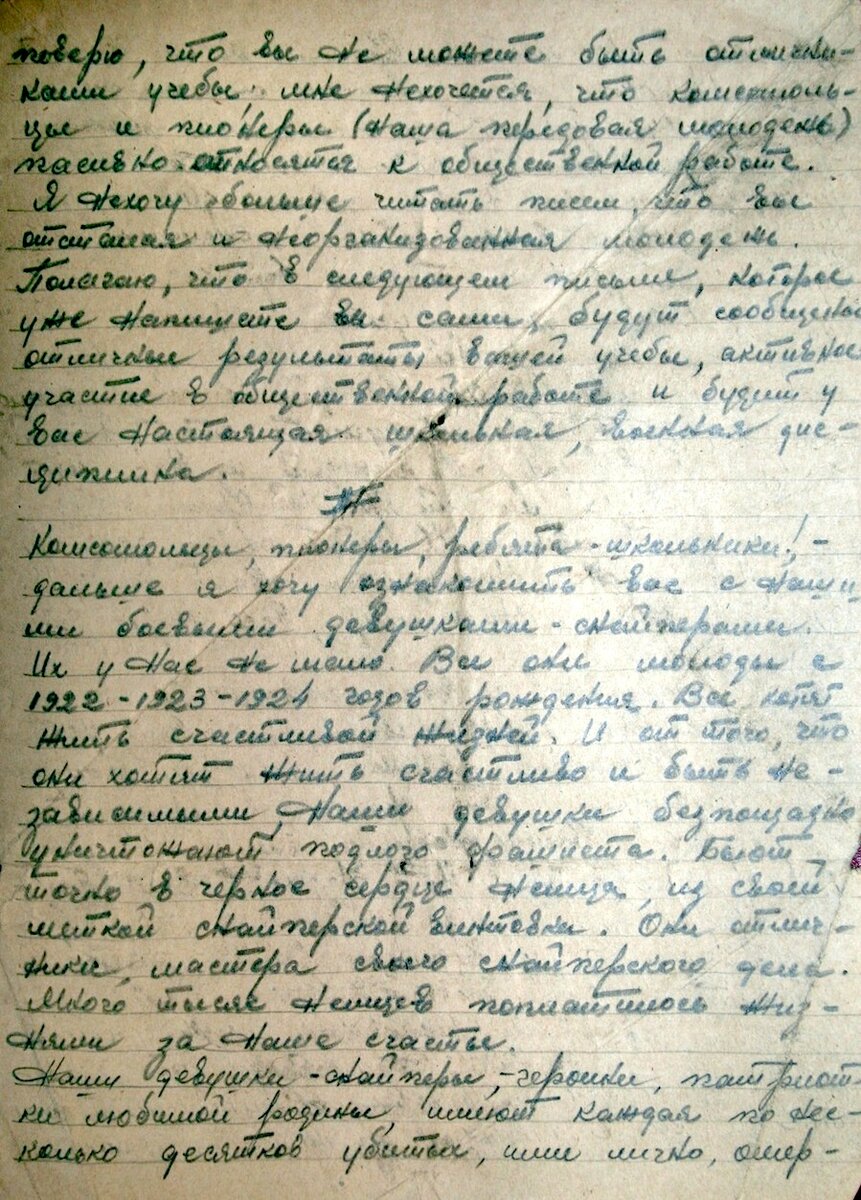 поверю, что вы не можете быть отлични-
ками учебы; мне нехочется, что комсомоль-
цы и пионеры (наша передовая молодежь)
пасивно относятся к общественной работе.
Я нехочу больше читать писем, что вы
отсталая и неорганизованная молодежь.
Полагаю, что в следующем письме, которое
уже напишете вы сами, будут сообщены
отличные результаты вашей учебы, активное
участие в общественной работе и будит у
вас настоящая школьная, военная дис-
циплина.
Комсомольцы, пионеры, ребята-школьники! -
дальше я хочу ознакомить вас с наши-
ми боевыми девушками - снайперами.
Их у нас не мало. Все они молоды с
1922-1923-1924 годов рождения. Все хотят
жить счастливой жизней. И от того, что
они хотят жить счастливо и быть не-
зависимыми, наши девушки безпощадно
уничтожают подлого фашиста. Бьют
точно в черное сердце немца, из своей
меткой снайперской винтовки. Они отлич-
ники, мастера своего снайперского дела.
Много тысяч немцев поплатилось жиз-
нями за наше счастье.
Наши девушки - снайперы, - героини, патриот-
ки любимой родины, имеют каждая по нес-
колько десятков убитых, ими лично, омер-